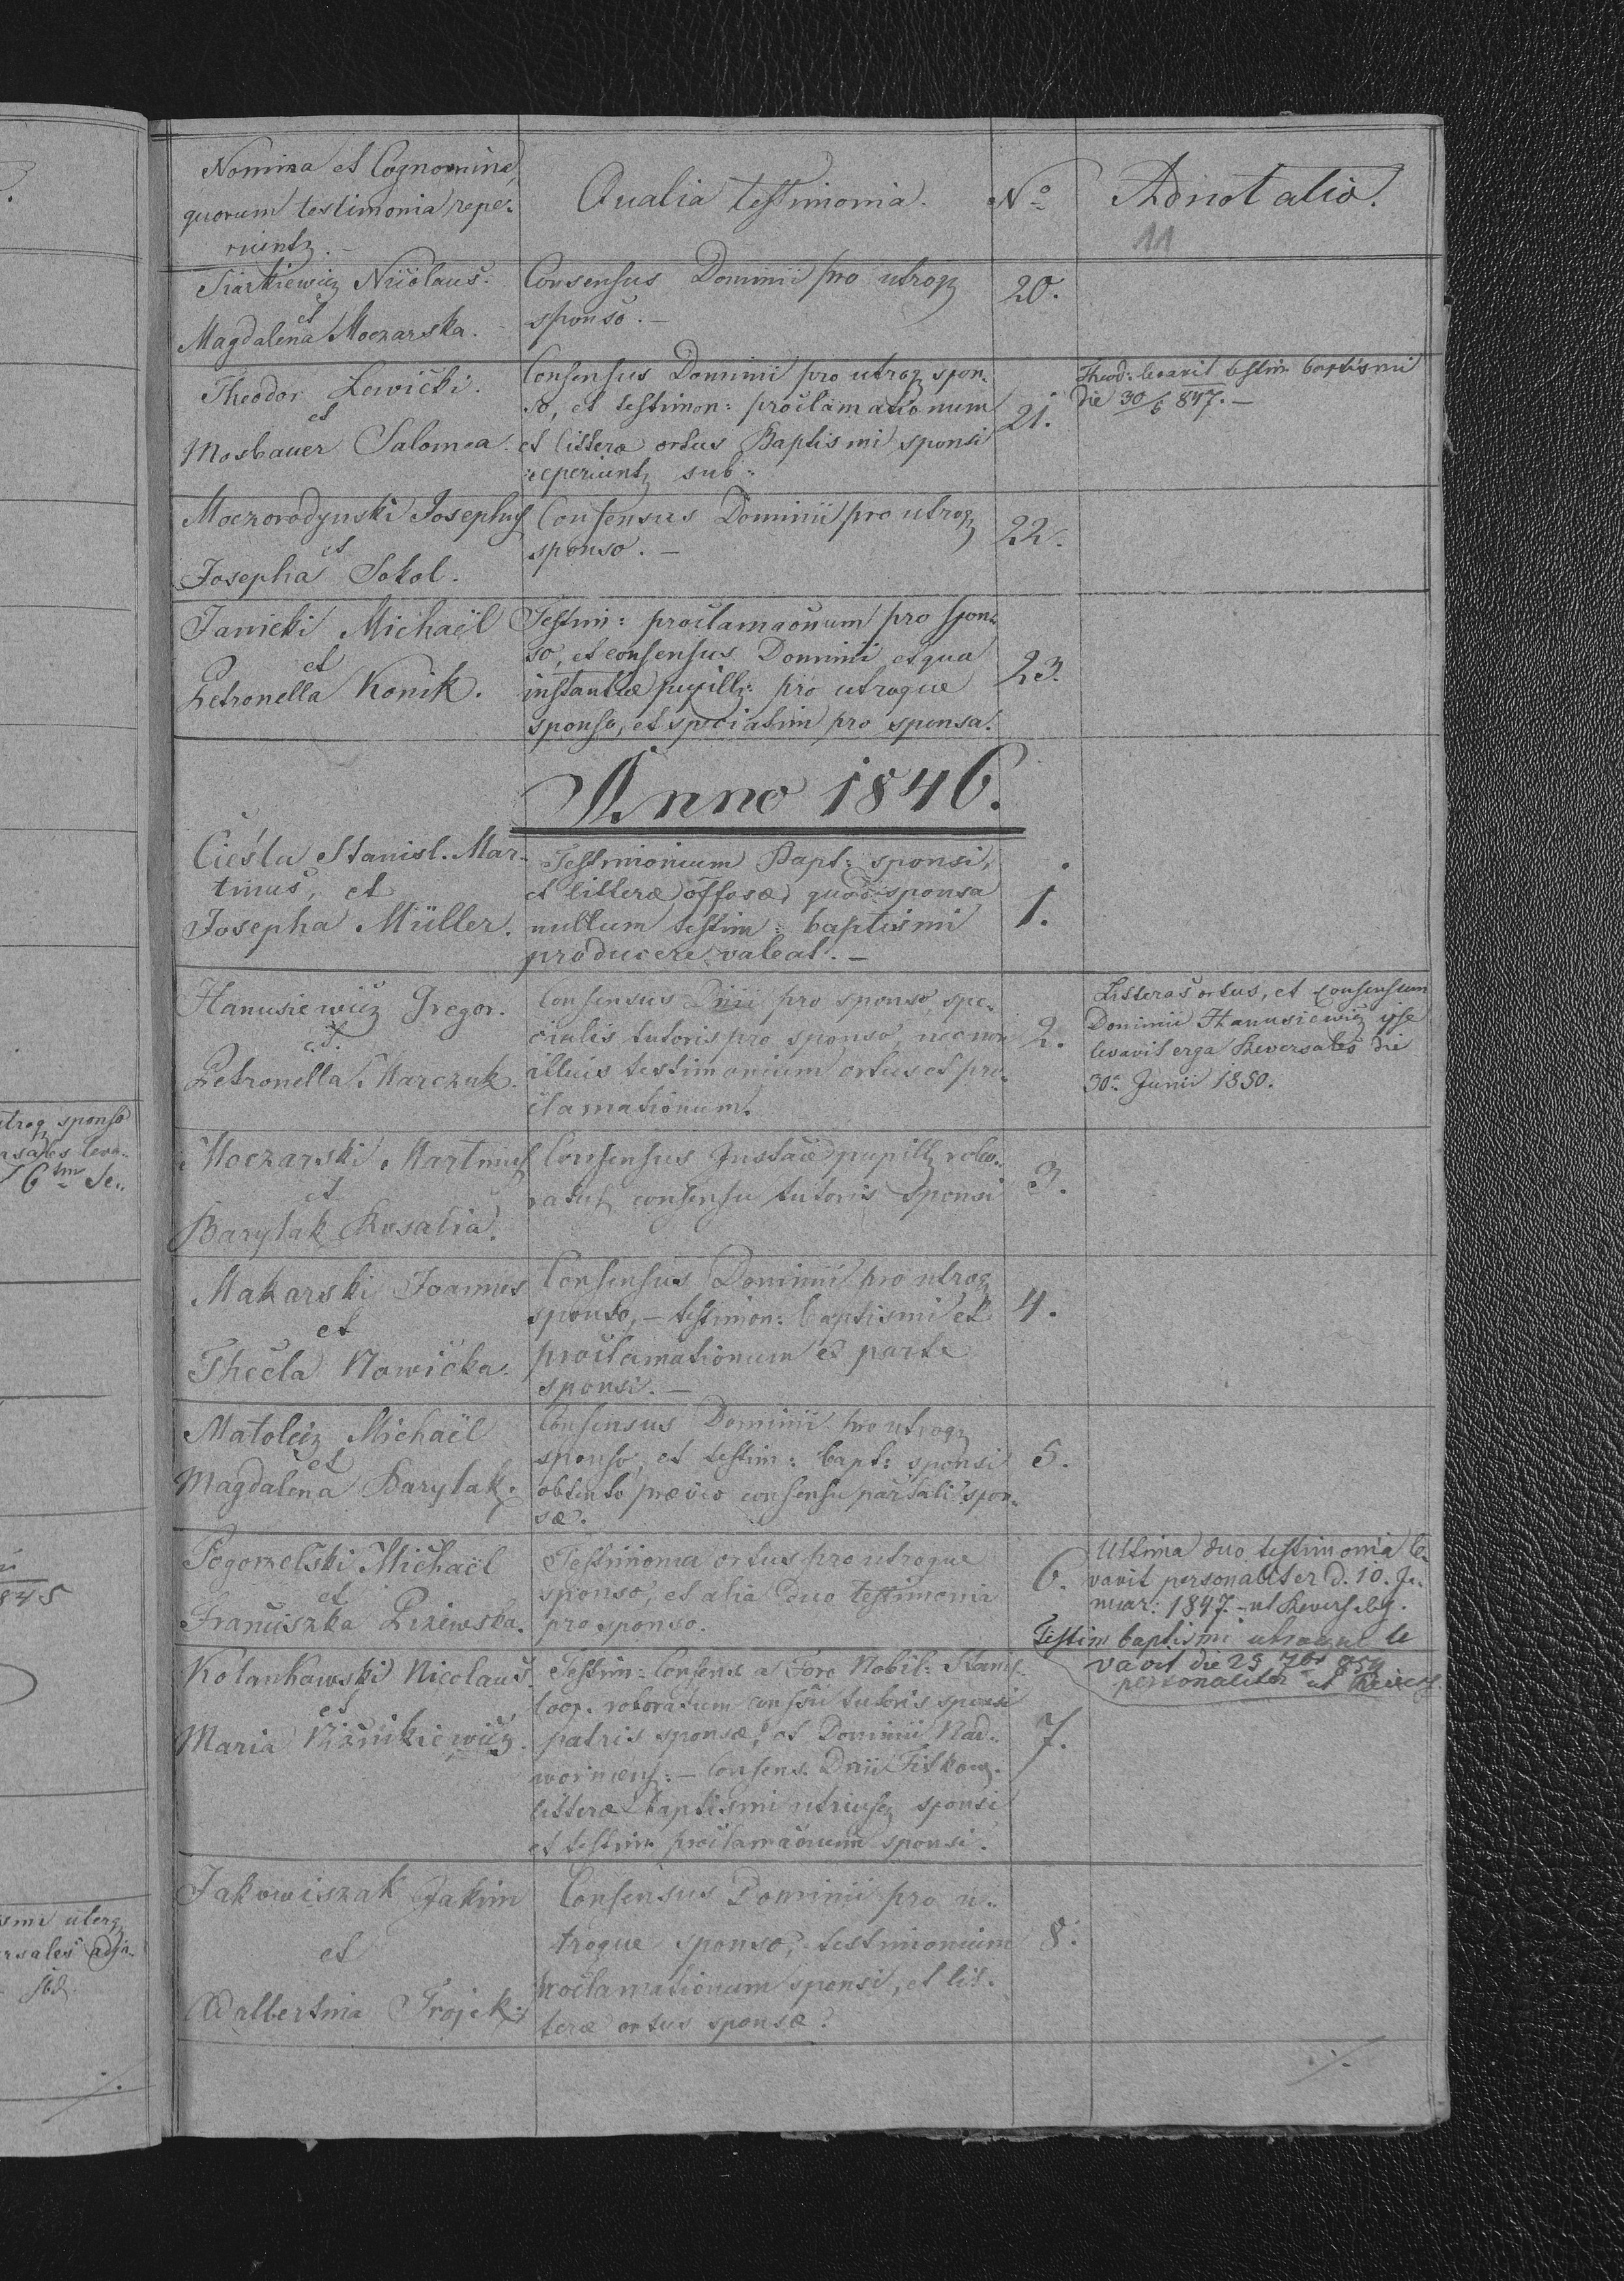 Nomina et Cognomina,
quorum testimonia repe-
riuntz.
Qualia testimonia.
No
Adnotatio.
11
Nicolaus
et
Magdalena Moczarska.
Consensus Dominii pro utroqz
sponso. —
20.
Theodor Lewicki.
et
Mosbauer Salomea.
Consensus Dominii pro utroqz spon-
so, et testimon: proclamationum
et litterae ortus Baptismi sponsi
reperiuntz sub:
21.
Theod: levavit testim baptismi
die 30/6 847. —
Moczorodynski Josephus
et
Josepha Sokol.
Consensus Dominii pro utroqz
sponso. —
22.
Janicki Michaël
et
Petronella Konik.
Testim: proclamaonum pro spon-
so, et consensus Dominii et qua
instantiae pupillz: pro utroque
sponso, et speciatim pro sponsa.
23.
Anno 1846.
Cieśla Stanisl. Mar-
tinus, et
Josepha Müller.
Testimonium Bapt: sponsi,
et litterae quod sponsa
nullum testim: baptismi
producere valeat. —
1.
Hanusiewicz Gregor.
et.
Petronella Marczuk.
Consensus Dnii pro sponso, spe-
cialis tutoris pro sponso, nec non
illius testimonium ortus et pro-
clamationum.
2.
Litteras ortus, et consensum
Dominii Hanusiewicz ipse
levavit erga Reversales die
30a Junii 1850.
Moczarski Martinus
et
Barylak Rosalia.
Consensus Instaae pupillz robo-
ratus consensu tutoris sponsi
3.
Makarski Joannes
et
Thecla Nowicka.
Consensus Dominii pro utroqz
sponso, — testimon: baptismi et
proclamationum ex parte
sponsi. —
4.
Matolicz Michaël
et
Magdalena Barylak.
Consensus Dominii pro utroqz
sponso, et testim: bapt: sponsi
obtento praevio consensu spon-
sae.
5.
Pogorzelski Michaël
et
Franciszka
Testimonia ortus pro utroque
sponso, et alia duo testimonia
pro sponso.
6.
Ultima duo testimonia le-
vavit personaliter d. 10. Ja-
nuar: 1847. – ut
Testim baptismi utraque le
vavit die 23 7br
personaliter ut
Kolankowski Nicolaus
et
Maria
Testim: Consens a Foro Nobil: Stanis-
loop. roboratum consensu tutoris sponsi
patris sponsae, et Dominii Nad-
wornens: — Consens. Dnii
litterae baptismi utriusqz sponsi
et testim. proclamaonum sponsi.
7.
Jakowiszak Jakim
et
Adalbertina Trojek.
Consensus Dominii pro u-
troque sponso, testimonium
proclamationum sponsi, et lit-
terae ortus sponsae.
8.
./.
utroqz sponso
845